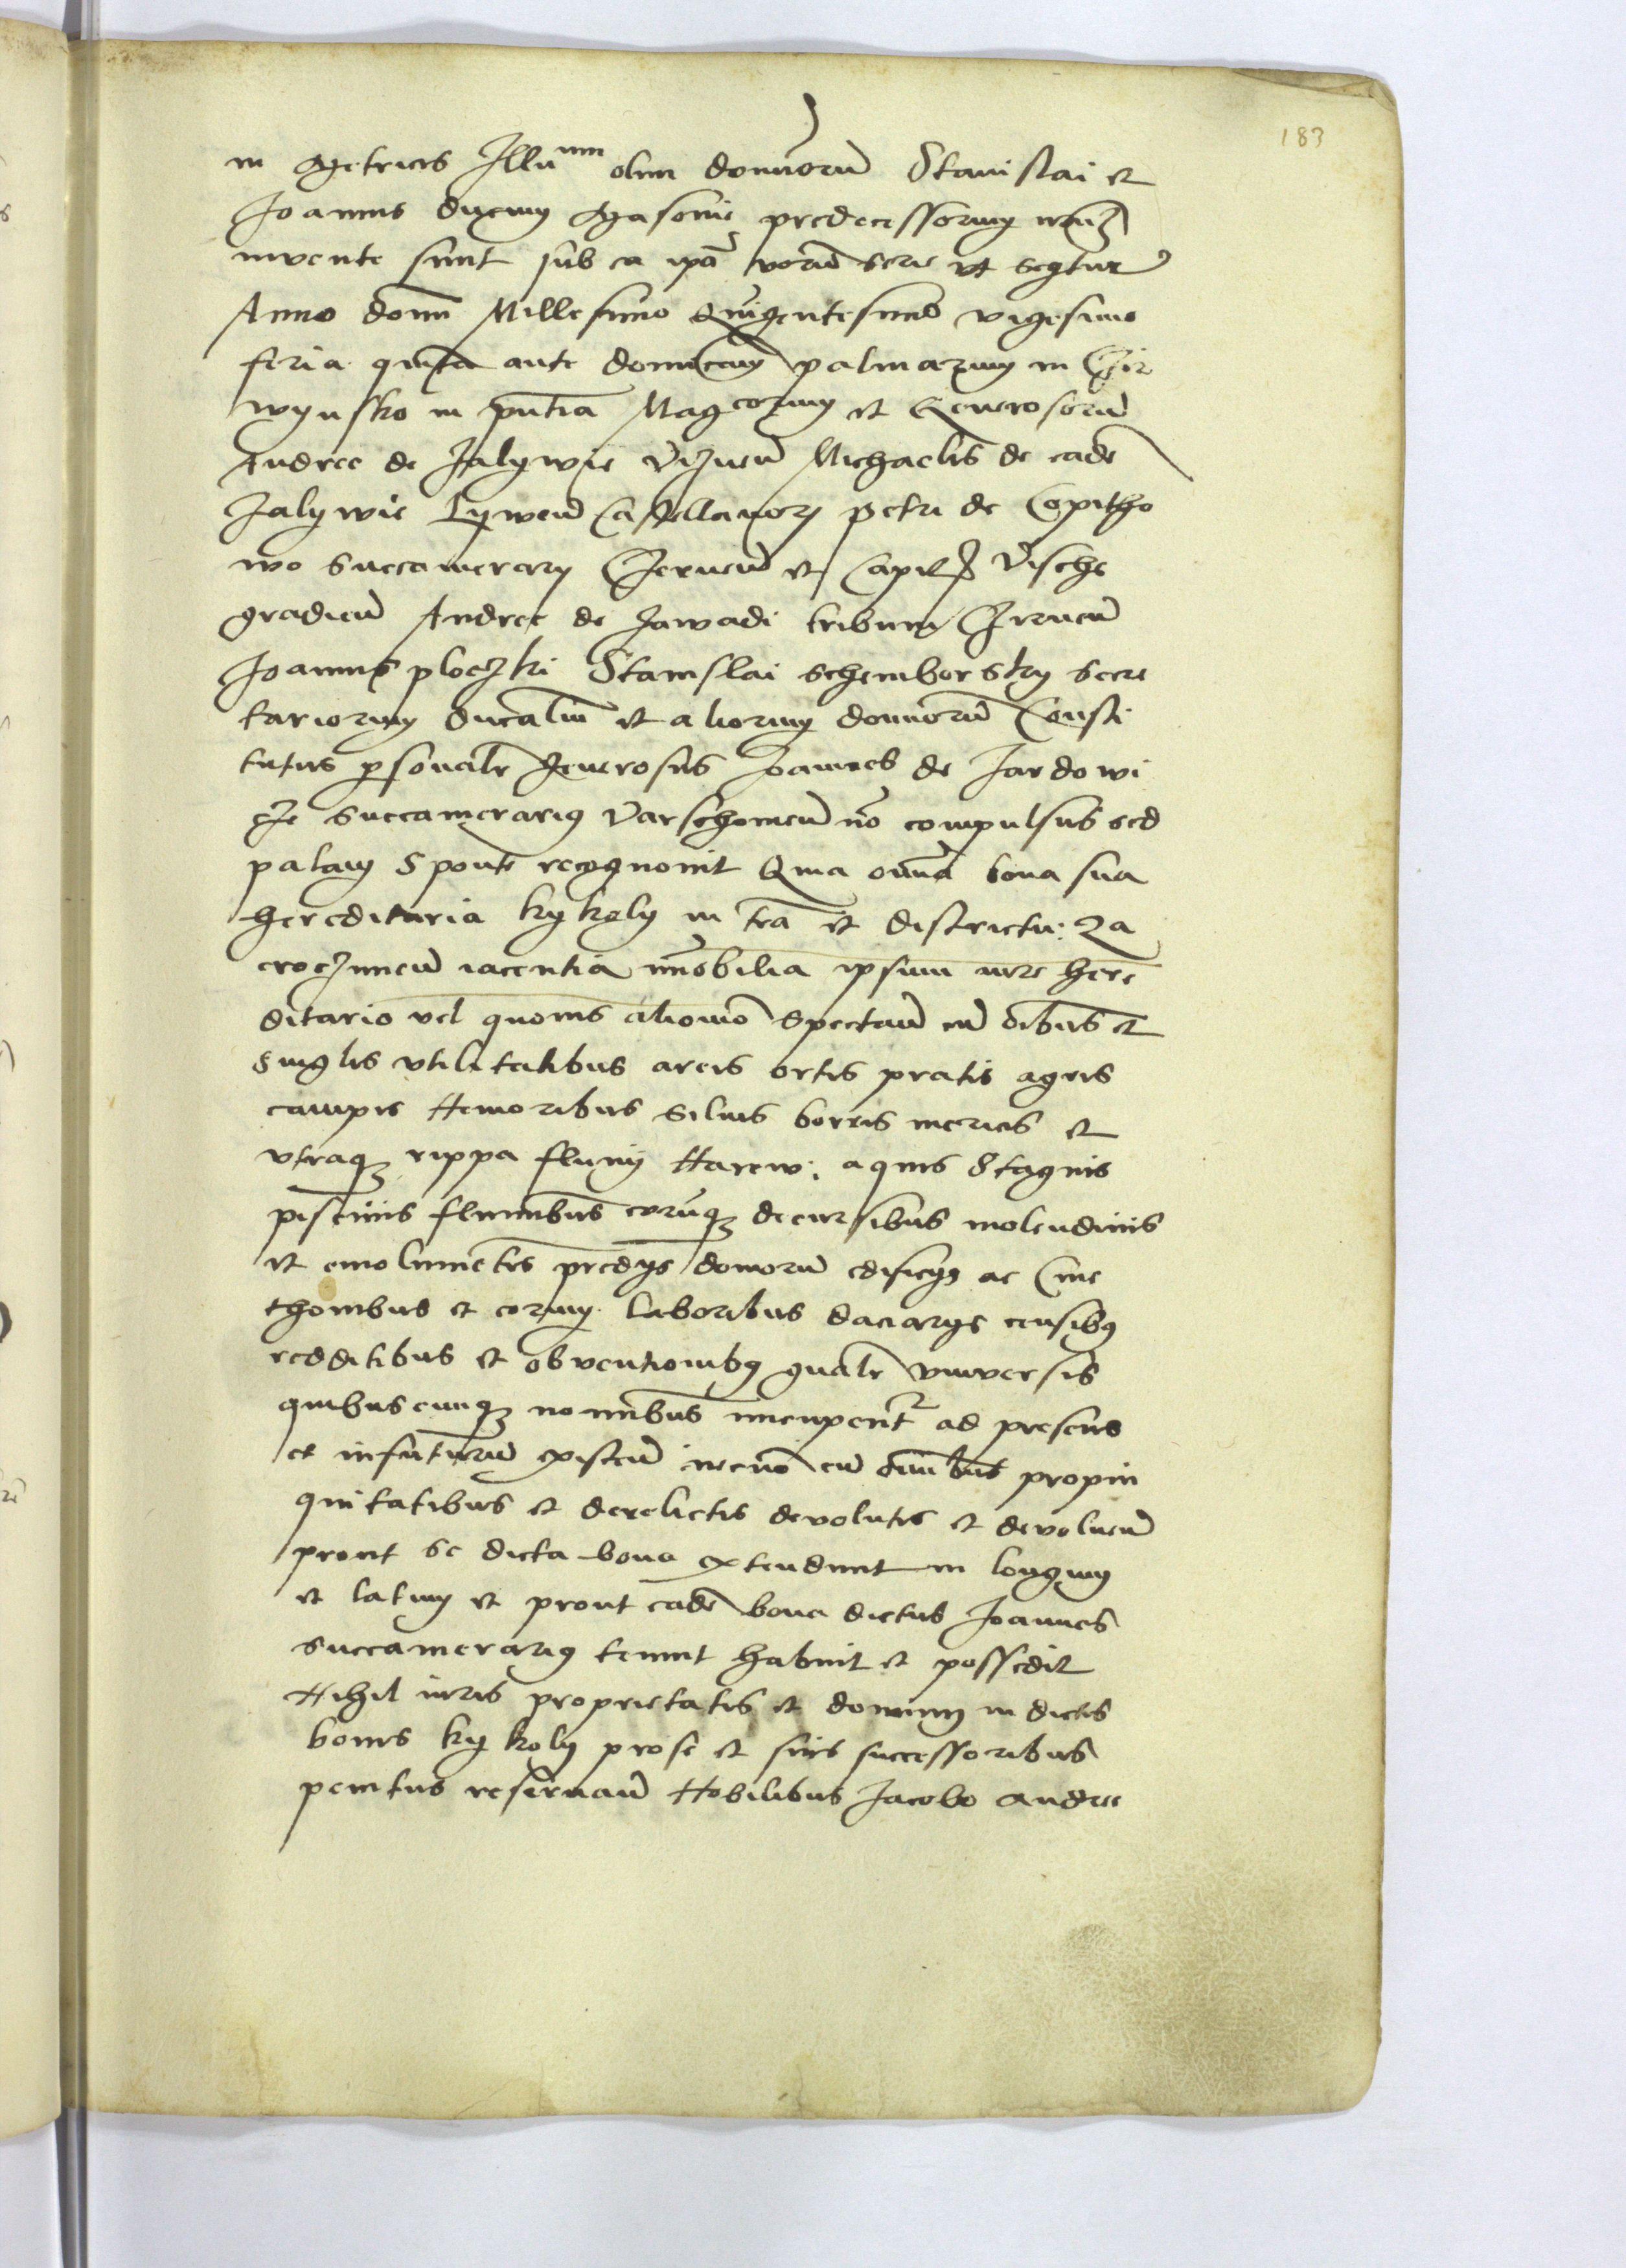 183
in Metricis Illu^um olim dominoru Stanislai et
Joannis ducum Masouie predecessorum nrorum
invente sunt sub ea ipa verboru serie vt seqtur
Anno domi Millesimo Quigentesimo vigesimo
feria quinta ante domicam palmarum in Czir
wynsko in pntia Magcorum et Generosoru
Andree de Zalywie Viznen Michaelis de eade
Zalywie Lywen Castellanorum Petri de Copitho
wo Succamerarij Czernen et Capit Vische
gradien Andree de Zawadi tribuni Czirnen
Joannis ploczki Stanislai schemborsky Secre
tariorum ducaliu et aliorum dominoru Consti
tutus psonalr Generosus Joannes de Jardowi
cze Succamerarius Varschouien no compulsus sed
palam Sponte recognouit Quia omia bona sua
hereditaria kykoly in tra et districtu Za
croczimen iacentia imobilia ipsum iure here
ditario vel quouis aliomo Spectan cu oibus et
singlis vtilitatibus areis ortis pratis agris
campis Nemoribus Siluis borris mericis et
vtraqz rippa fluuij Narew aquis Stagnis
piscinis fluminbus eoruqz decursibus molendinis
et emolumetis predijs domoru edificijs ac Cme
thonibus et eorum laboribus daciarijs censibus
redditibus et obventionibus gnalr vniversis
quibuscunqz nominbus nucupentr ad presens
et infuturu existen necno cu omibus propin
quitatibus et derelictis devolutis et devoluen
prout se dicta bona extendunt in longum
et latum et prout eade bona dictus Joannes
Succamerarius tenuit habuit et possedit
Nihil iuris proprietatis et dominij in dictis
bonis kykoly prose et suis successoribus
penitus reseruan Nobilibus Jacobo Andree